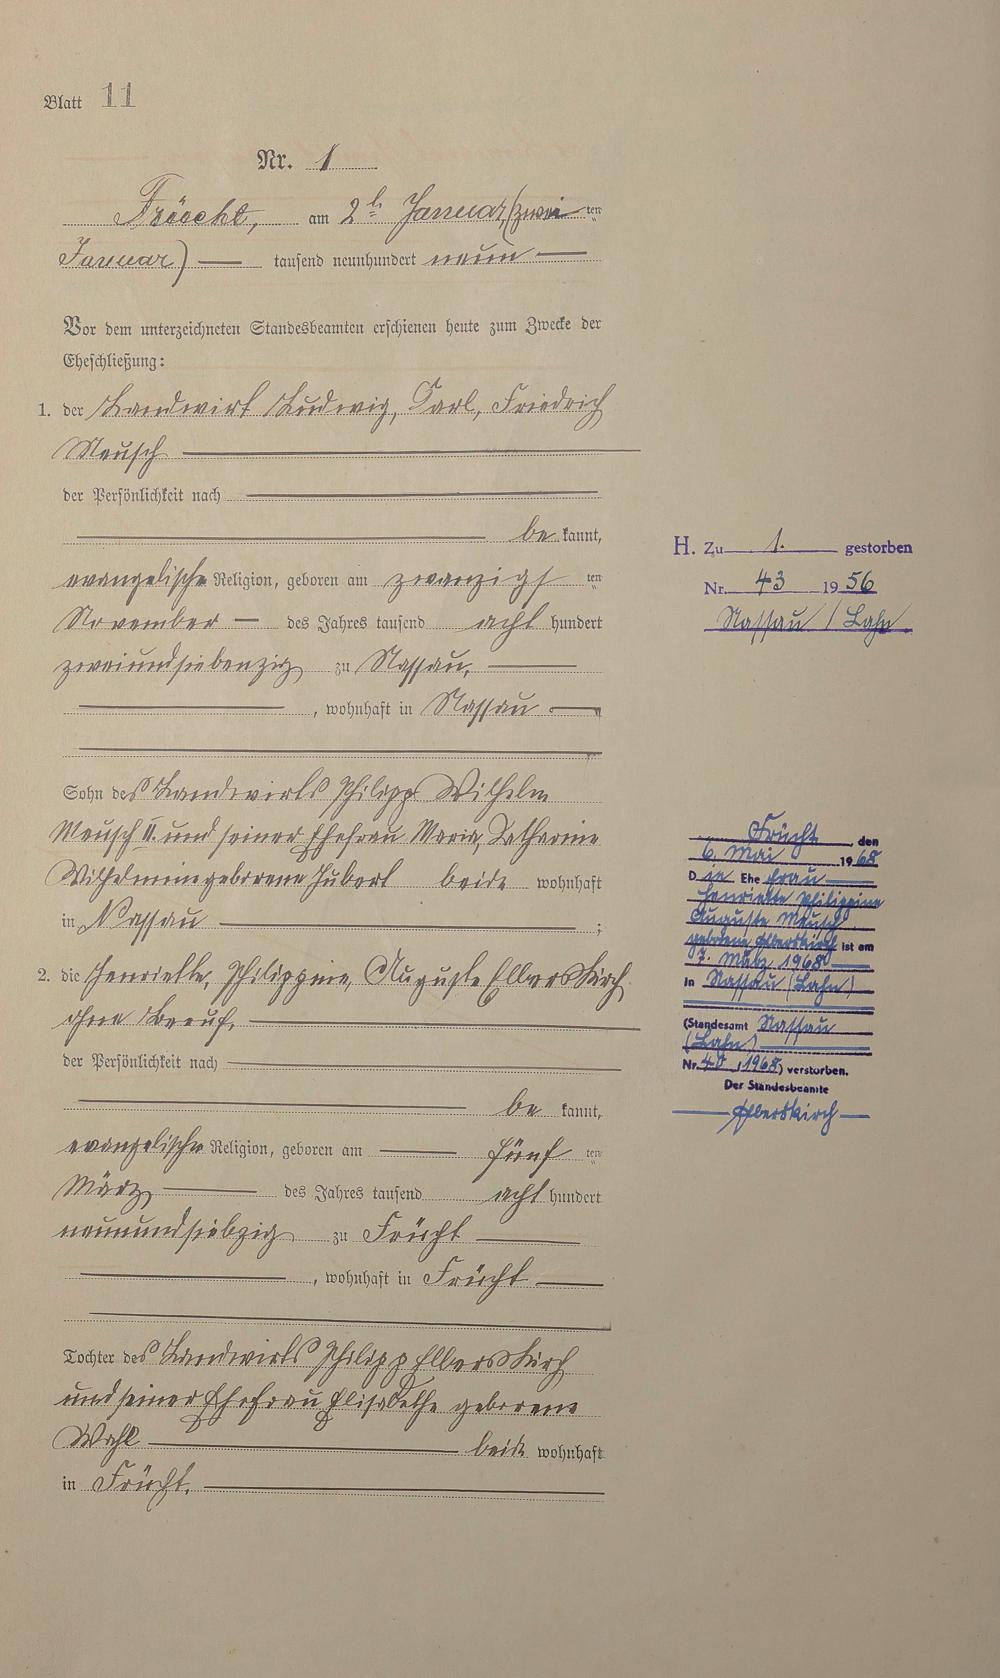 Blatt 11
Nr. 1
Frücht, am 2ten Januar (zwei ten
Januar) tausend neunhundert neun
Vor dem unterzeichneten Standesbeamten erschienen heute zum Zwecke der
Eheschließung:
1. der Landwirt Ludwig, Carl, Friedrich
Meusch
der Persönlichkeit nach
be kannt,
evangelischer Religion, geboren am zwanzigs ten
November des Jahres tausend acht hundert
zweiundsiebenzig zu Nassau,
, wohnhaft in Nassau
Sohn des Landwirts Philipp Wilhelm
Meusch II. und seiner Ehefrau Maria, Catharine
Wilhelmine geborene Hubert beide wohnhaft
in Nassau ;
2. die Henriette, Philippine, Auguste Elberskirch
ohne Beruf,
der Persönlichkeit nach
be kannt,
evangelischer Religion, geboren am fünf ten
März des Jahres tausend acht hundert
neunundsiebzig zu Frücht
, wohnhaft in Frücht
Tochter des Landwirts Philipp Elberskirch
und seiner Ehefrau Elisabethe geborene
Wahl beide wohnhaft
in Frücht.
H. Zu 1. gestorben
Nr. 43 1956
Nassau / Lahn
Frücht, den
6. Mai 1968
Die Ehefrau
Henriette Philippine
Auguste Meusch
geborene Elberskirch ist am
7. März 1968
in Nassau (Lahn)
(Standesamt Nassau
(Lahn)
Nr. 40, 1968) verstorben.
Der Standesbeamte
Elberskirch